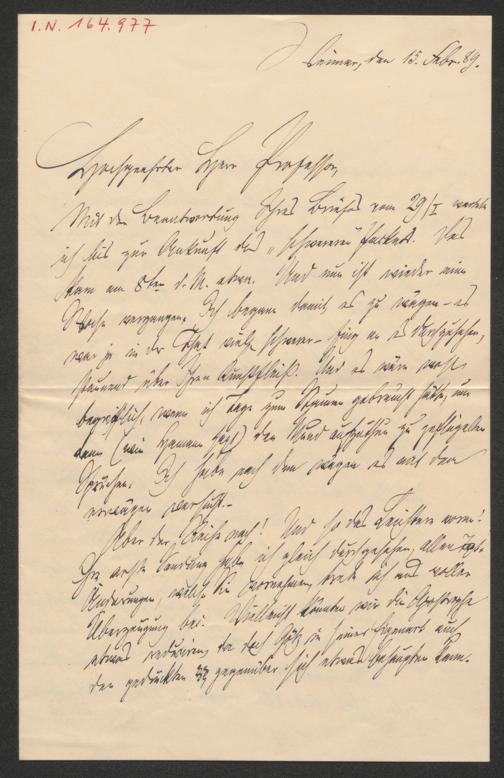 I.N. 164.977
Weimar, den 15. Febr. 89.
Hochgeehrter Herr Professor,
Mit der Beantwortung Ihres Briefes vom 29/I wartete
ich bis zur Ankunft des „schweren“ Packets. Das
kam am 8ten d. M. etwa. Und nun ist wieder eine
Woche vergangen. Ich begann damit, es zu wägen – es
war ja in der That recht schwer – fing an es durchzusehen,
staunend über Ihren Kunstfleiß. Und es wäre wohl
begreiflich, wenn ich Tage zum Staunen gebraucht hätte, um
dann (wie Hamann sagt) den Mund aufzuthun zu geflügelten
Sprüchen. Ich habe nach dem wägen es mit dem
erwägen versucht. –
Aber der Reihe nach! Und so das Leichtere vorn!
Ihre erste Sendung habe ich gleich durchgesehen, allen
Änderungen, welche Sie vornehmen, trete ich aus voller
Überzeugung bei. Vielleicht könnten wir die Apostrophe
etwas reduziren, da doch Götz in seiner Eigenart auch
den gedruckten gegenüber sich etwas behaupten kann.